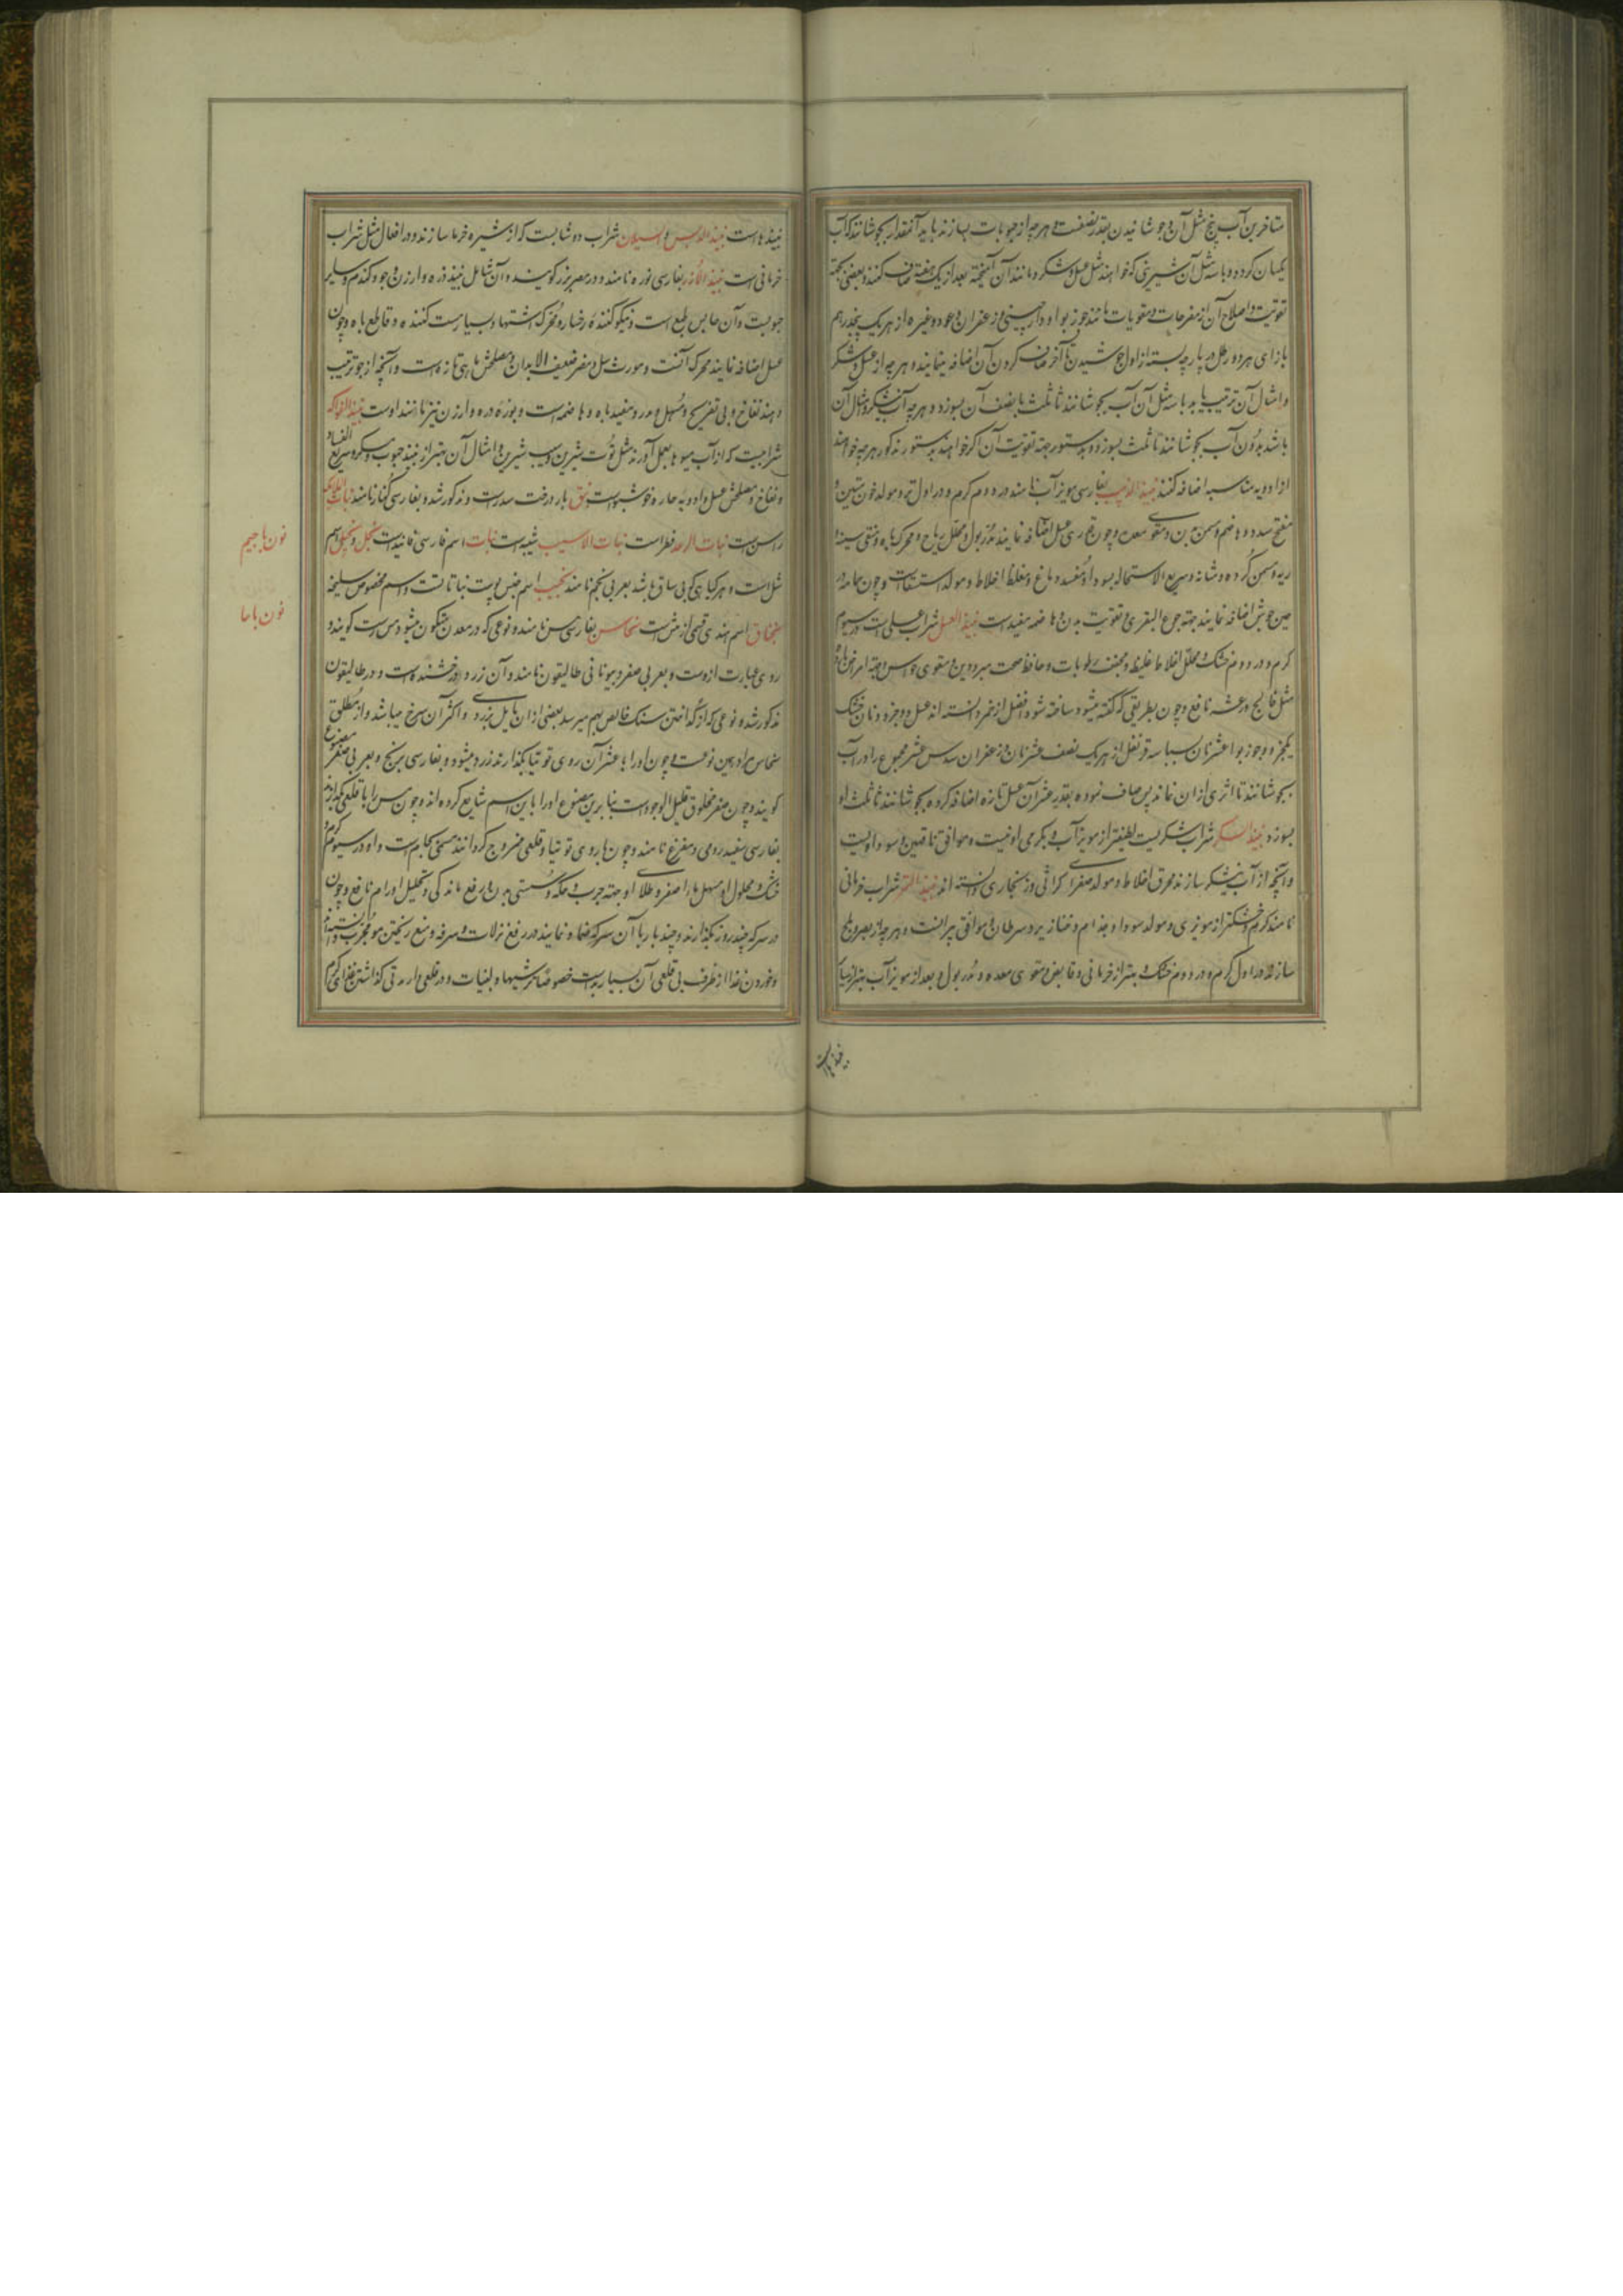 متاخرین آب پنج مثل آن و جوشانیدن بقدر نصفست و هر چه از حبوبات بسازند باید آنقدر بجوشانند که آب
یکسان کرده و با سه مثل آن شیرینی که خواهند مثل عسل و شکر و مانند آن آمیخته بعد از یک هفته صاف کنند و بعضی بجهة
تقویت و اصلاح آن از مفرحات و مقویات مانند جوز بوا و دارچینی و زعفران و عود و غیره از هر یک پنجدرهم
بازای هر ده رطل در پارچه بسته از اول جوشیدن تا آخر صاف کردن آن اضافه مینمایند و هر چه از عسل و شکر
و امثال آن ترتیب یابد با سه مثل آن آب بجوشانند تا ثلث یا نصف آن بسوزد و هر چه آب نیشکر و مثال آن
باشد بدون آب بجوشانند تا ثلث بسوزد و بدستور جهة تقویت آن اگر خواهند بدستور مذکور هر چه خواهند
از ادویه مناسبه اضافه کنند نبیذ الزبیب بفارسی مویز آب نامند در دوم گرم و در اول تر و مولد خون متین و
مفتح سدد و هاضم و مسمن بدن و مقوی معده و چون قدری عسل اضافه نمایند مدر بول و محلل ریاح و محرک باه و منقی سینه و
ریه و مسمن گرده و مثانه و سریع الاستحاله بسودا و مفسد دماغ و مغلظ اخلاط و مولد استسقاست و چون حماما در
حین جوش اضافه نمایند جهة جوع البقری و تقویت بدن و هاضمه مفیداست نبیذ العسل شراب عسلی است در سیوم
گرم و در دوم خشک و محلل اخلاط غلیظ و مجفف رطوبات و حافظ صحت مبرودین و مقوی حواس و جهة امراض بارده
مثل فالج و رعشه نافع و چون بطریقی که گفته میشود ساخته شود افضل از خمر دانسته اند عسل دو جزو و نان خشک
یکجزو و جوز بوا عشر نان بسباسه قرنفل از هر یک نصف عشر نان و زعفران سدس عشر مجموع را در آب
بجوشانند تا اثری از ان نماند پس صاف نموده بقدر عشر آن عسل تازه اضافه کرده بجوشانند تا ثلث او
بسوزد نبیذ السکر شراب شکریست لطیفتر از مویز آب و بگرمی او نیست و موافق ناقهین و سوداویست
و آنچه از آب نیشکر سازند محرق اخلاط و مولد صفرای کراثی و زنجاری دانسته اند نبیذ التمر شراب خرمائی
نامند گرم و خشکتر از مویزی و مولد سودا و جذام و خنازیر و سرطان و موافق پیرانست و هر چه از بسر و بلح
سازند در اول گرم و در دوم خشک و بهتر از خرمائی و قابض و مقوی معده و مدر بول و بعد از مویز آب بهتر از سایر
نبیذهاست
نبیذهاست نبیذ الدبس و السیلان شراب دوشابست که از شیره خرما سازند و در افعال مثل شراب
خرمائی است نبیذ الارز بفارسی بوزه نامند و در مصر بزر گویند و آن شامل نبیذ ذره و ارزن و جو و گندم و سایر
حبوبست و آن حابس طبع است و نیکو کننده رخسار و محرک اشتها و بسیار مست کننده و قاطع باه و چون
عسل اضافه نمایند محرک آنست و مورث سل و مضر ضعیف الابدان و مصلحش ماهی تازه است و آنچه از جو ترتیب
دهند نفاخ و بی تفریح و مسهل و مدر و مفید باه و هاضمه است و بوزه ذره و ارزن نیز مانند اوست نبیذ الفواکه
شرابیست که از آب میوها بعمل آورند مثل توت شیرین و سیب شیرین و امثال آن بهتر از نبیذ حبوب و مسکر و سریع الفساد
و نفاخ و مصلحش عسل و ادویه حاره خوشبوست نبق بار درخت سدر است و مذکور شد و بفارسی کنار نامند
راسن است نبات الرعد فطر است نبات الاسیب شیبه است نبات اسم فارسی فانیذ است نجل و نجیل اسم
ثیل است و هر گیاهی که بی ساق باشد بعربی نجم نامند نجب اسم جنس پوست نباتاتست و اسم مخصوص سلیخه
اسم هندی قسمی از مش است نحاس بفارسی مس نامند و نوعی که در معدن متکون میشود مس رست گویند و
روی عبارت ازوست و بعربی صفر و بیونانی طالیقون نامند و آن زرد و درخشنده است و در طالیقون
مذکور شد و نوعی که از گداختن سنک خالص بهم میرسد بعضی از ان مایل بزردی و اکثر آن سرخ میباشد و از مطلق
نحاس مراد همین نوعست و چون او را با عشر آن روی توتیا بگدازند زرد میشود و بفارسی برنج و بعربی صفر مصنوع
گویند و چون صفر مخلوق قلیل الوجود است بنا برین مصنوع او را باین اسم شایع کرده اند و چون مس را با قلعی بگدازند
بفارسی سفید روی و مفرغ نامند و چون با روی توتیا و قلعی ممزوج گردانند مسمی بجام است و او در سیوم گرم و
خشک و محلول او مسهل ماء اصفر و طلای او جهة جرب و حکه و سستی بدن و رفع ماندگی و تحلیل اورام نافع و چون
در سرکه چند روز بگذارند و چند بار با آن سرکه ضماد نمایند در رفع نزلات و سرفه و منع ریختن مو مجرب دانسته اند
و خوردن غذا از ظرف بی قلعی آن بسیار بد است خصوصا ترشیها و لبنیات و در قلعی دار مدتی گذاشتن غذای گرم
نون با جیم
نون با حا